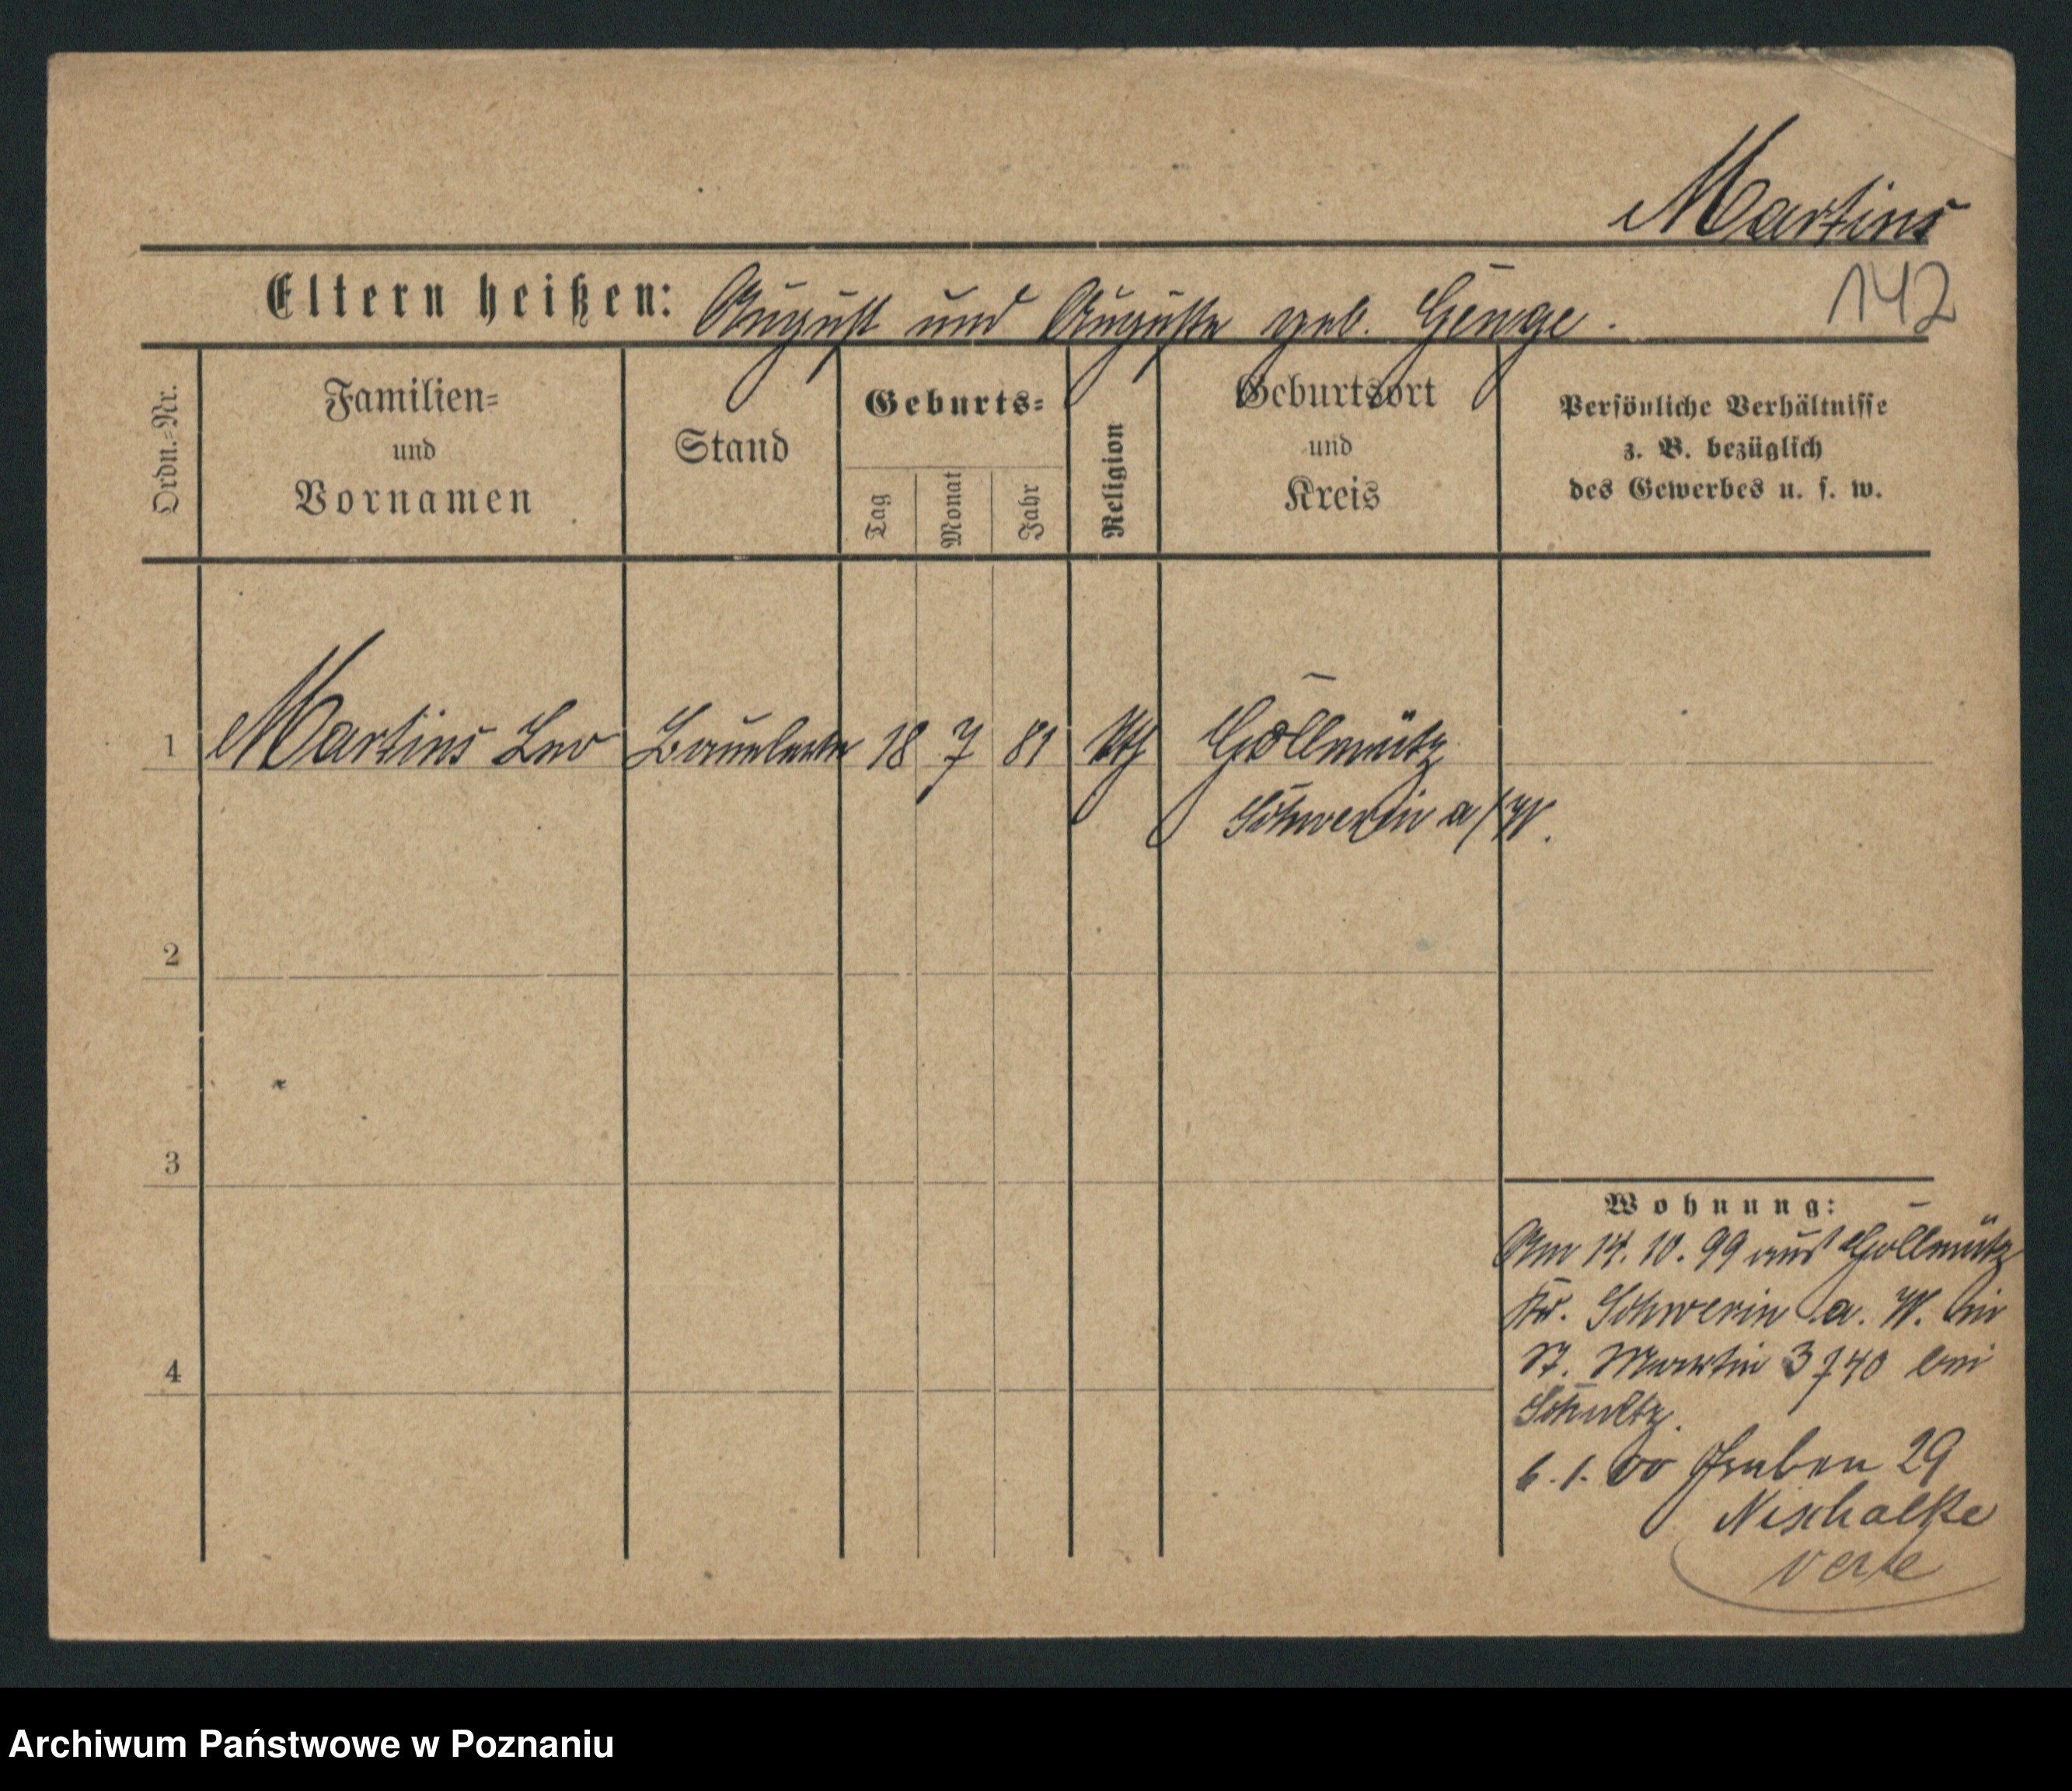 Martins
142
Eltern heißen: August und Auguste geb. Genge.
Ordn.=Nr.
Familien=
und
Vornamen
Stand
Geburts=
Tag
Monat
Jahr
Religion
Geburtsort
und
Kreis
Persönliche Verhältnisse
z. B. bezüglich
des Gewerbes u. s. w.
1 Martins Leo 18 7 81 Gollmütz
Schwerin a/W.
2
3
4
Wohnung:
Am 14. 10. 99 aus Gollmütz
Kr. Schwerin a. W. hier
St. Martin 39/40 bei
Schultz.
6. 1. 00 Graben 29
Nischalke
verte
Archiwum Państwowe w Poznaniu